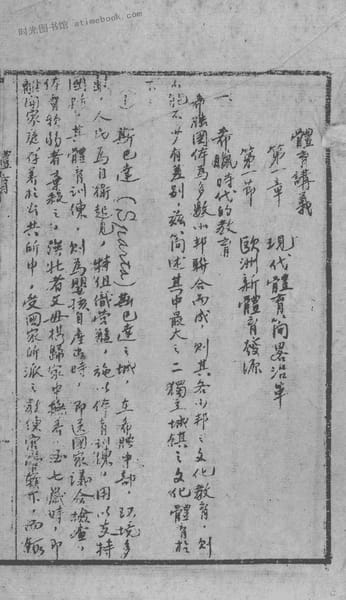 时光图书馆 · atimebook.com
體育講義
第一章 現代體育簡畧沿革
第一節 歐洲新體育發源
一、希臘時代的教育
希臘國体為多數小邦聯合而成,則其各小邦之文化教育,則
不能不少有差别,茲简述其中最大之二獨立城鎮之文化體育於
下:
(1) 斯巴達(Sparta)斯巴達之城,立希臘中部,环境多
,人民為自衛起見,特組織營,施以体育訓練,用以支持
國,其體育訓練,則為嬰孩自產出時,即送國家議会檢查,
体育 弱者棄殺之,强壯者父母携歸家中撫养,至七歲時,即
離開家庭,住养於公共所中,受國家所派之教練官管轄下,而
體育